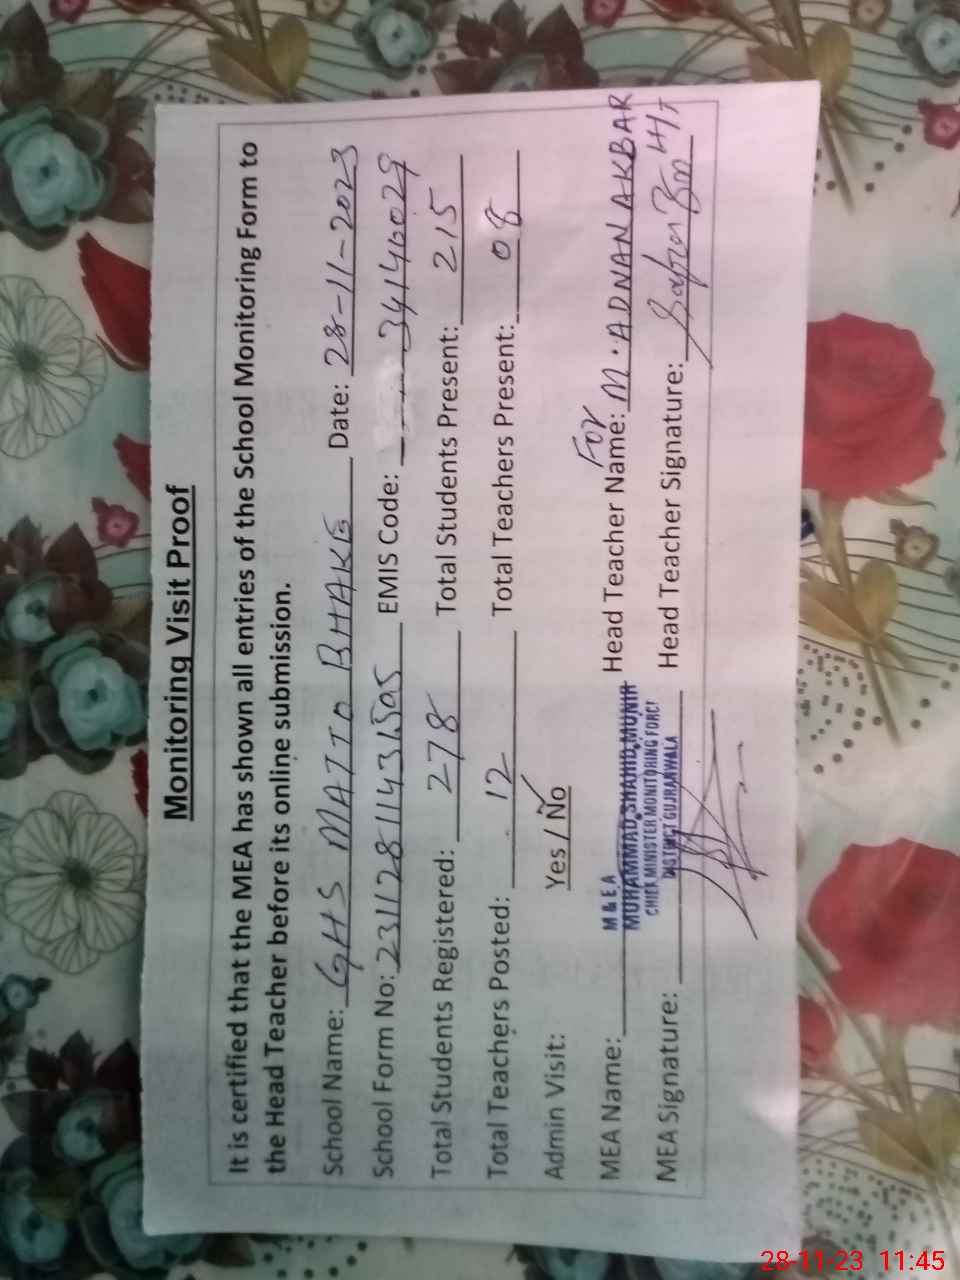 Monitoring Visit Proof
It is certified that the MEA has shown all entries of the School Monitoring Form to
the Head Teacher before its online submission.
School Name: GHS MATTO BHAKE Date: 28-11-2023
School Form No: 23112811431505 EMIS Code: 34140029
Total Students Registered: 278 Total Students Present: 215
Total Teachers Posted: 12 Total Teachers Present: 08
Admin Visit: Yes / No
For
M & E A
MEA Name: MUHAMMAD SHAHID MUNIR Head Teacher Name: M. ADNAN AKBAR
CHIEF MINISTER MONITORING FORCE
DISTRICT GUJRANWALA
MEA Signature: Head Teacher Signature:
28-11-23 11:45